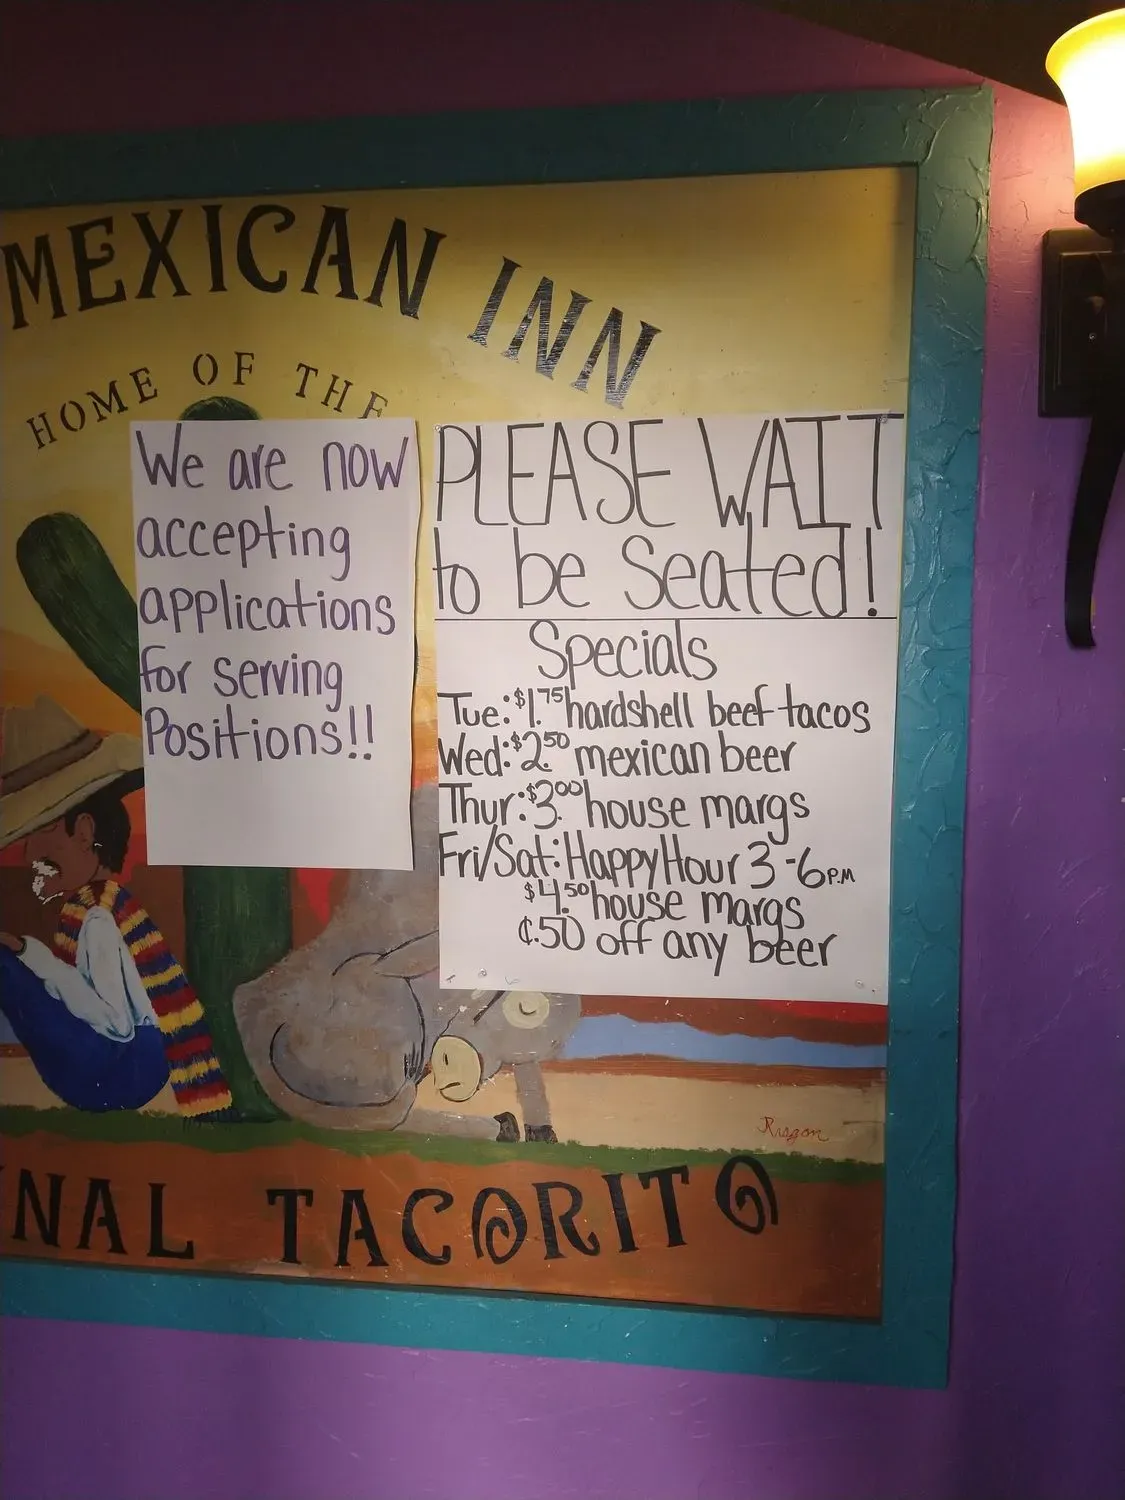 MEXICAN INN
HOME OF THE
We are now
accepting
applications
for serving
Positions!!
PLEASE WAIT
to be Seated!
Specials
Tue: $1.75 hardshell beef tacos
Wed: $2.50 mexican beer
Thur: $3.00 house margs
Fri/Sat: Happy Hour 3-6 P.M
$4.50 house margs
¢.50 off any beer
Ragon
NAL TACORITO